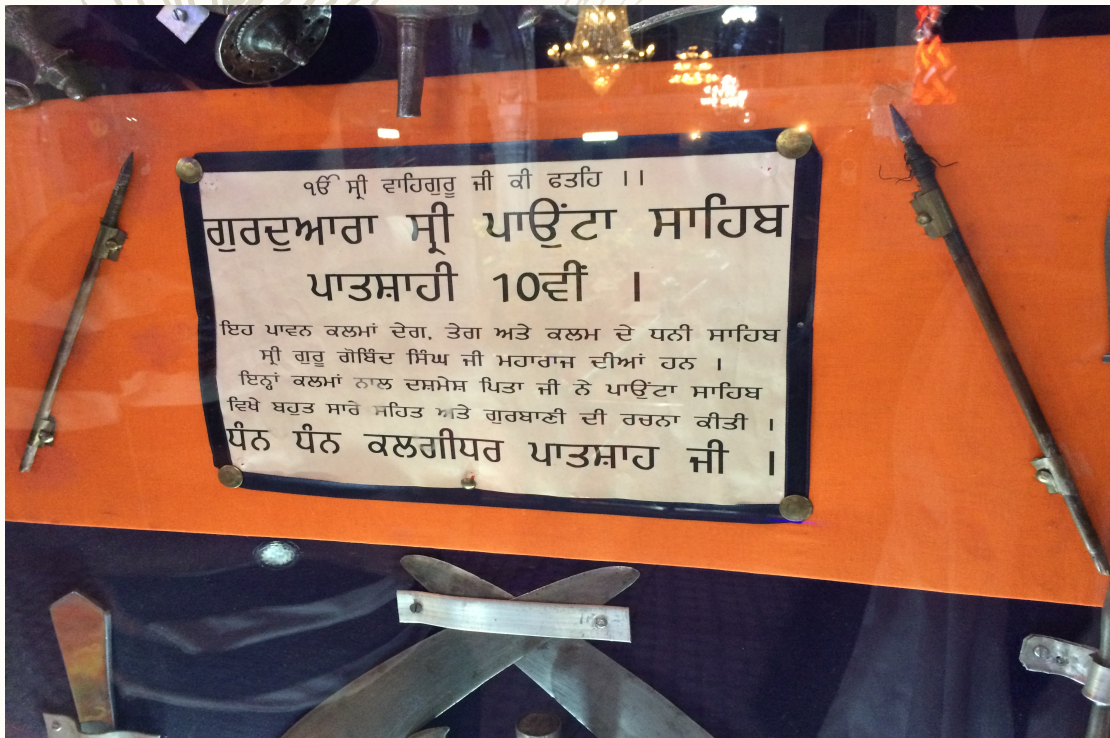 ੴ ਸ੍ਰੀ ਵਾਹਿਗੁਰੂ ਜੀ ਕੀ ਫਤਹਿ ।।
ਗੁਰਦੁਆਰਾ ਸ੍ਰੀ ਪਾਉਂਟਾ ਸਾਹਿਬ
ਪਾਤਸ਼ਾਹੀ 10ਵੀਂ ।
ਇਹ ਪਾਵਨ ਕਲਮਾਂ ਦੇਗ, ਤੇਗ ਅਤੇ ਕਲਮ ਦੇ ਧਨੀ ਸਾਹਿਬ
ਸ੍ਰੀ ਗੁਰੂ ਗੋਬਿੰਦ ਸਿੰਘ ਜੀ ਮਹਾਰਾਜ ਦੀਆਂ ਹਨ ।
ਇਨ੍ਹਾਂ ਕਲਮਾਂ ਨਾਲ ਦਸ਼ਮੇਸ਼ ਪਿਤਾ ਜੀ ਨੇ ਪਾਉਂਟਾ ਸਾਹਿਬ
ਵਿਖੇ ਬਹੁਤ ਸਾਰੇ ਸਹਿਤ ਅਤੇ ਗੁਰਬਾਣੀ ਦੀ ਰਚਨਾ ਕੀਤੀ ।
ਧੰਨ ਧੰਨ ਕਲਗੀਧਰ ਪਾਤਸ਼ਾਹ ਜੀ ।